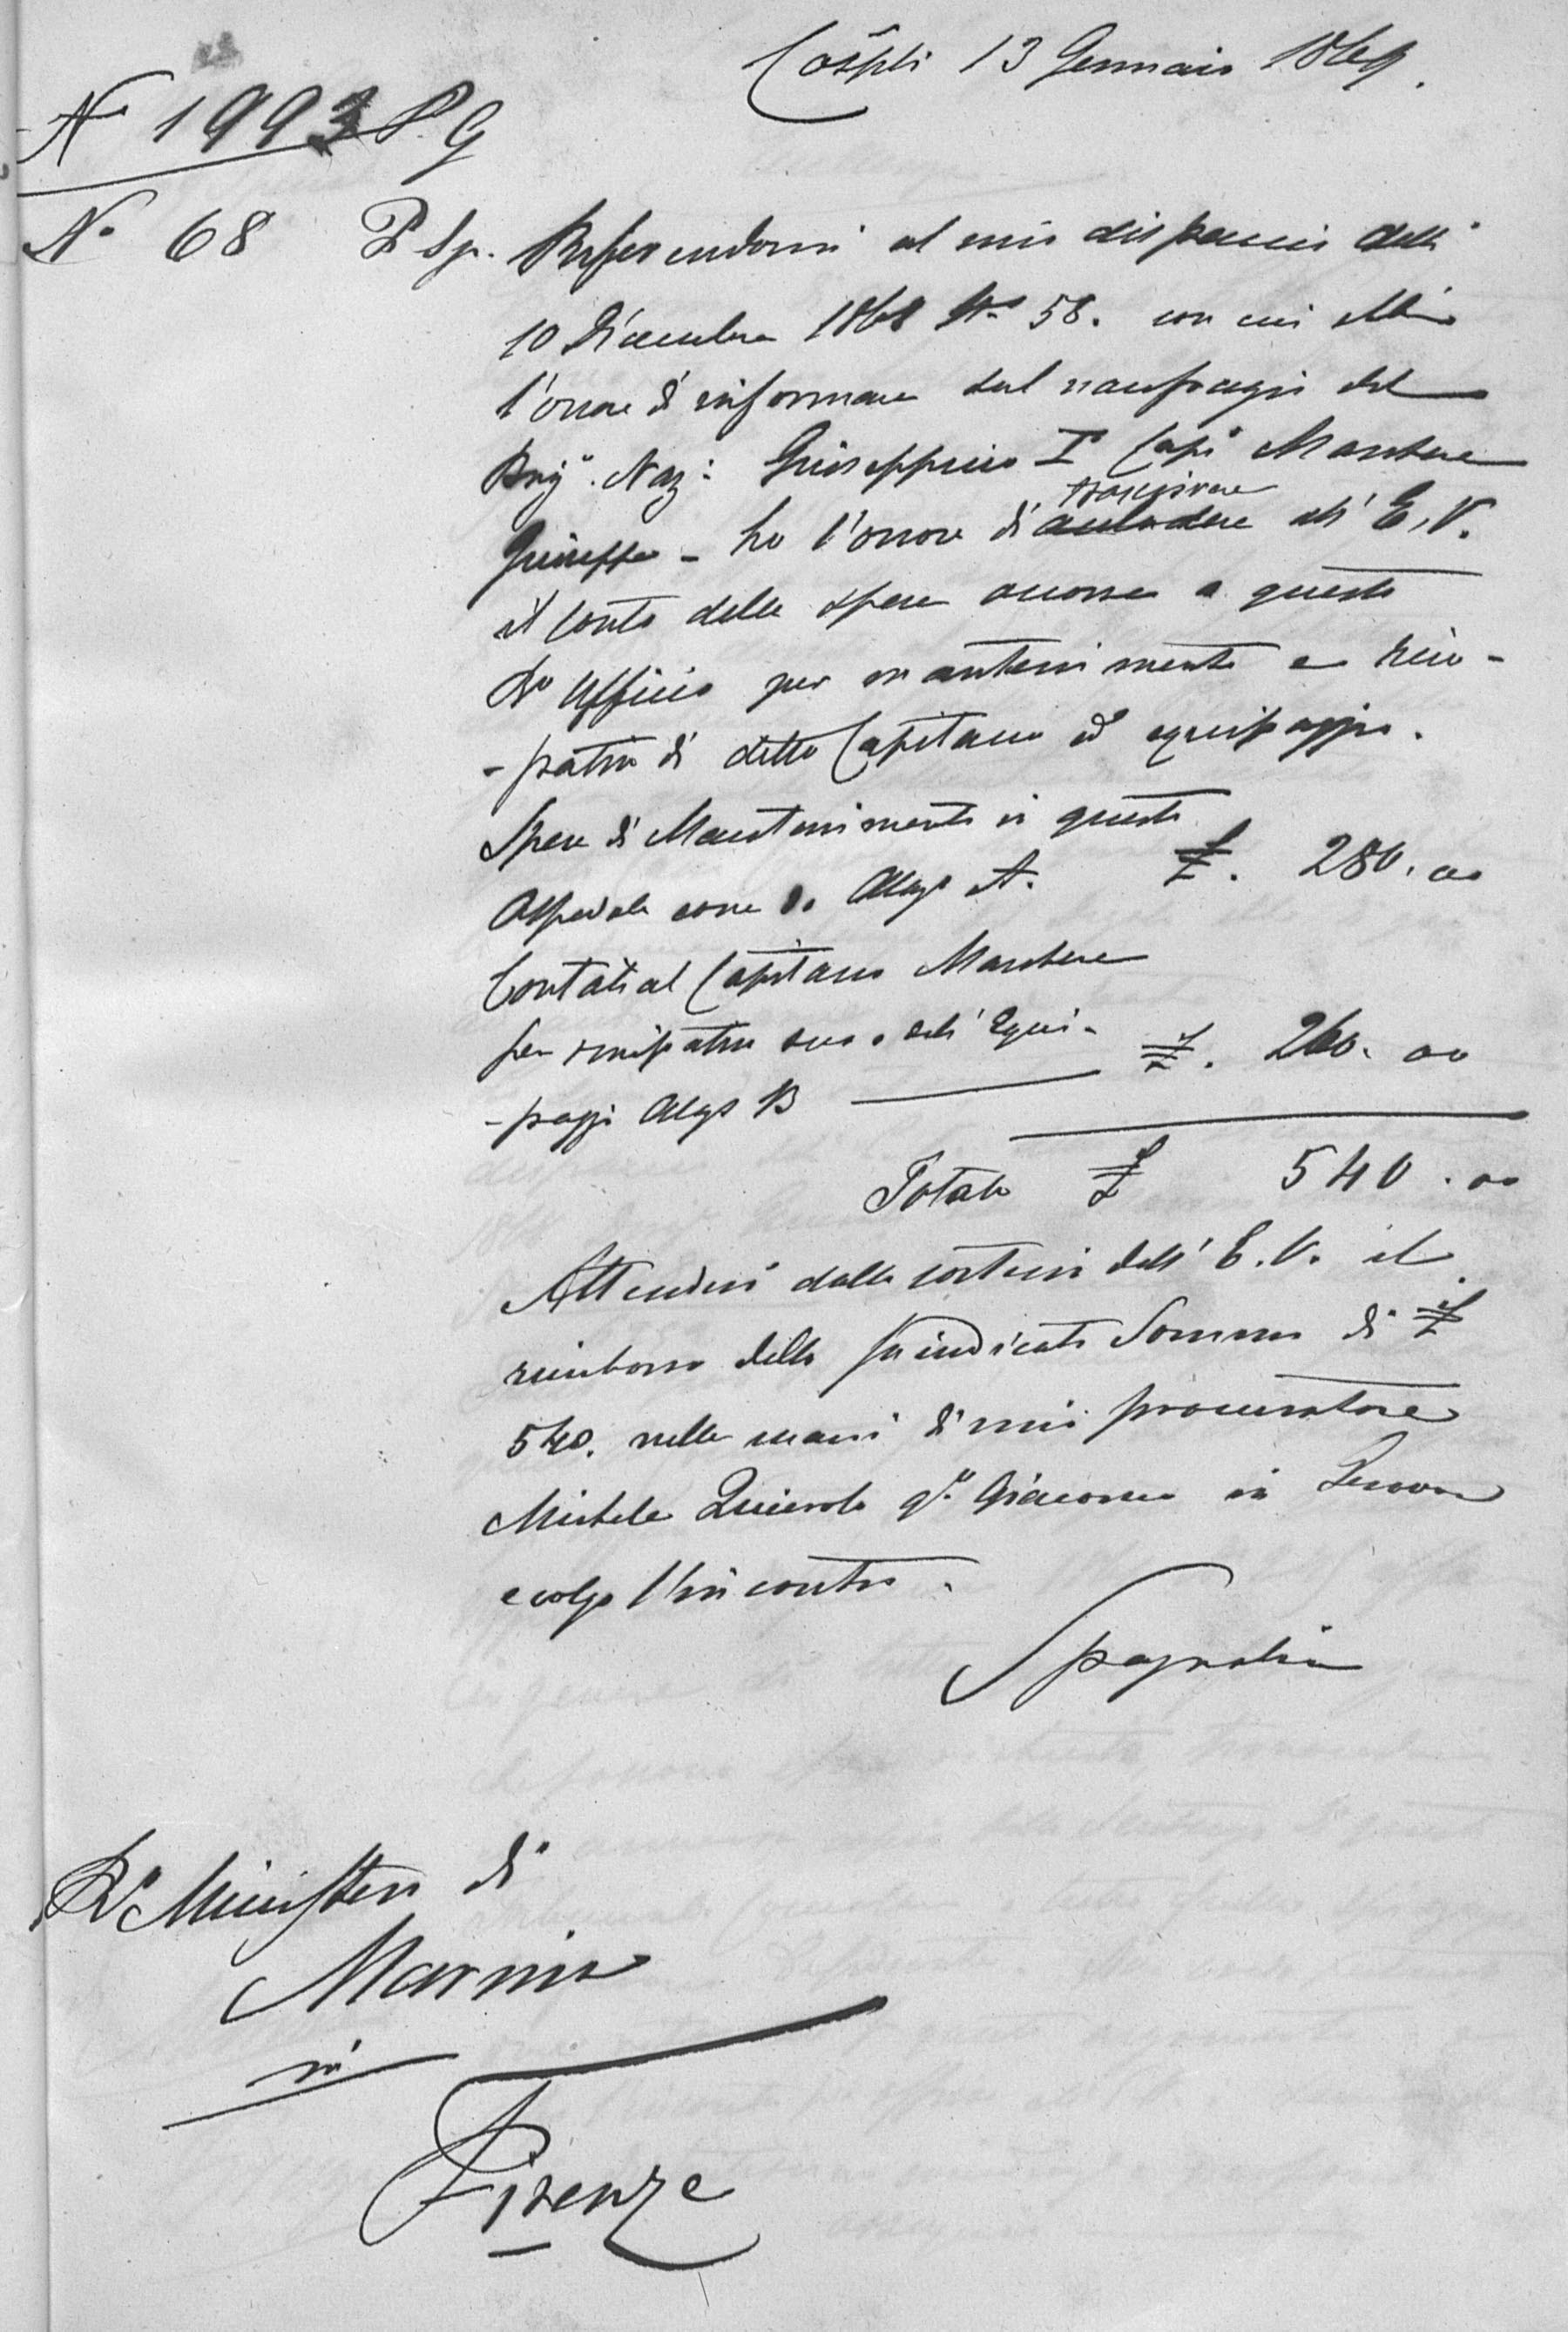 Cospli 13 Gennaio 1869.
N° 1993 P. G
N° 68 P Sp.
Referendomi al mio dispaccio delli
10 Dicembre 1868 N° 58. con cui ebbi
l'onore d'informare sul naufragio del
Brig°. Naz: Giuseppino I° Cap°
Giuseppe - ho l'onore di trascrivere all' E. V.
il conto delle spese occorse a questo
R° Ufficio per mantenimento e rim-
-patrio di detto Capitano ed equipaggio.
Spese di Mantenimento in questo
Ospedale come da Alleg° A. £. 280. 00
Contati al Capitano
per rimpatrio suo e dell' Equi-
-paggio Alleg° B £. 260. 00
Totale £ 540. 00
Attenderò dalla cortesia dell' E. V. il
rimborso della suindicata Somma di £
540. nelle mani di mio procuratore
Michele q.m Giacomo in Genova
e colgo l'incontro.
Spagnolini
R° Ministero di
Marina
in
Firenze